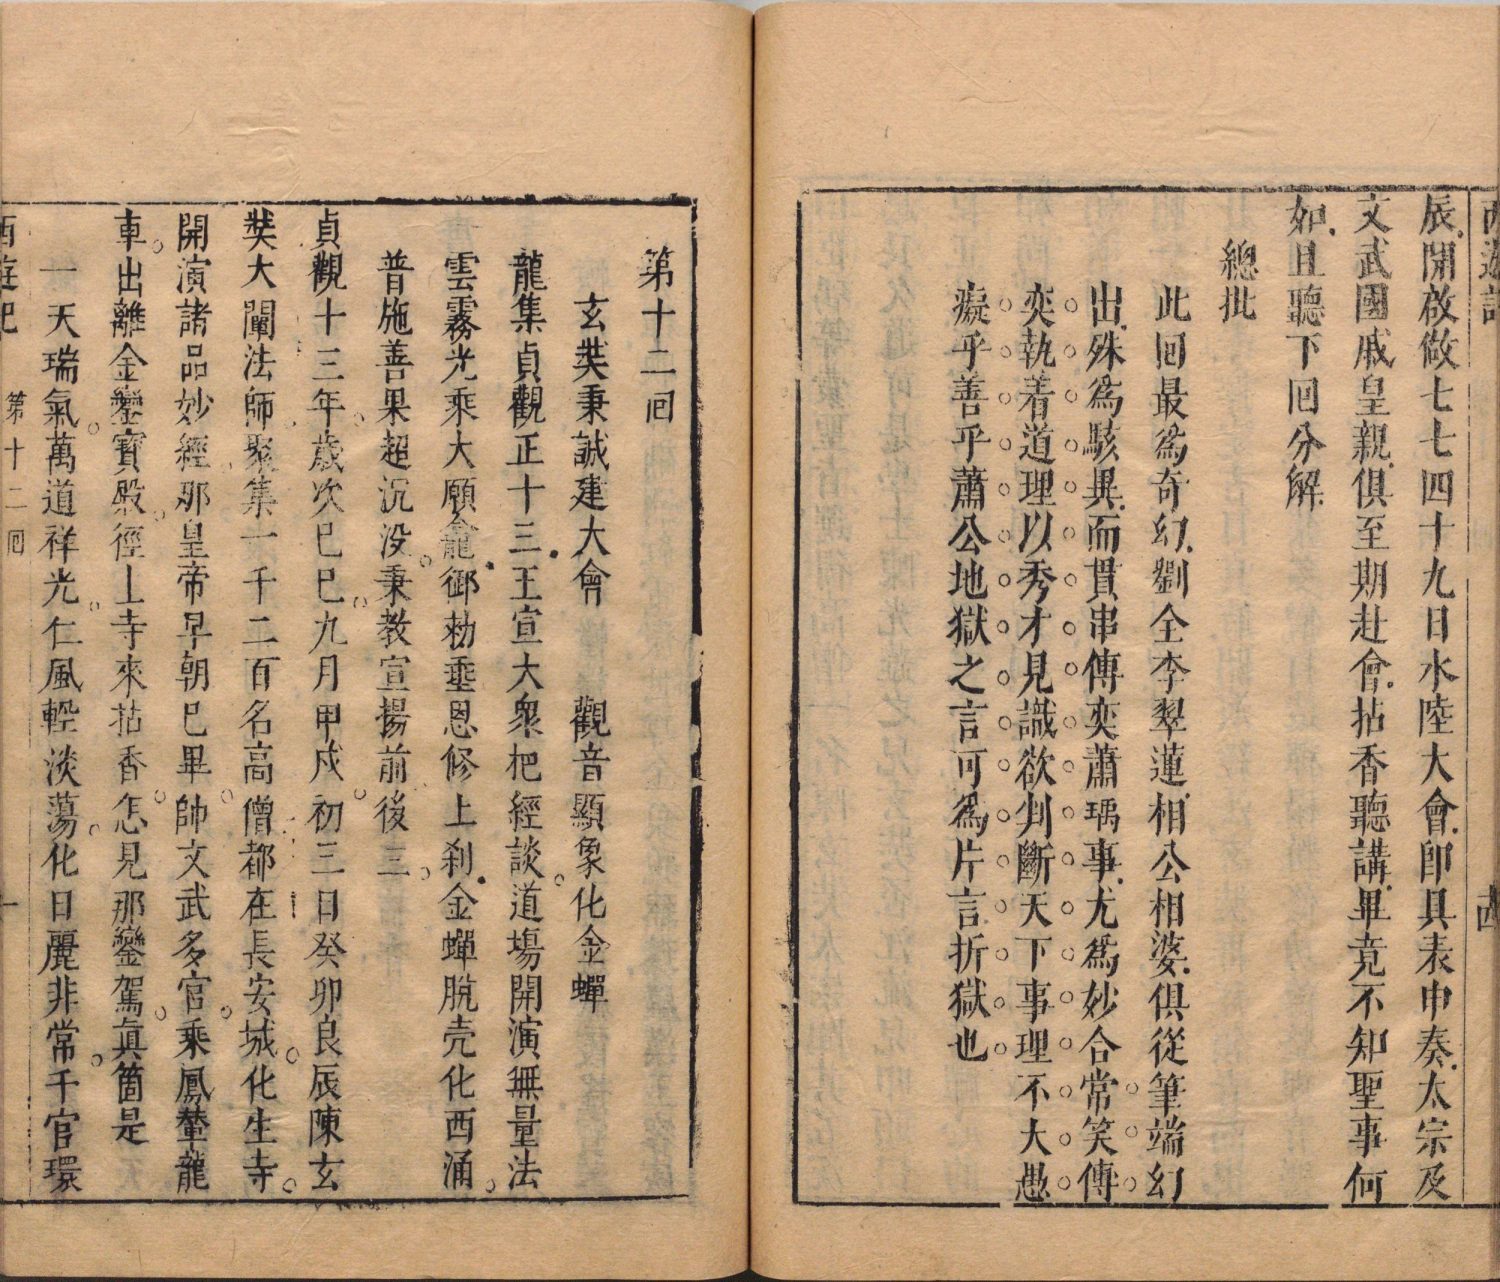 西遊記
辰開啟做七七四十九日水陸大會即具表申奏太宗及
文武國戚皇親俱至期赴會拈香聽講畢竟不知聖事何
如且聽下囘分解
總批
此囘最爲奇幻劉全李翠蓮相公相婆俱從筆端幻
出殊爲駭異而貫串傳奕蕭瑀事尤爲妙合常笑傳
奕執着道理以秀才見識欲判斷天下事理不大愚
癡乎善乎蕭公地獄之言可爲片言折獄也
第十二囘
玄奘秉誠建大會　觀音顯象化金蟬
龍集貞觀正十三王宣大衆把經談道塲開演無量法
雲霧光乘大願龕御勅垂恩修上刹金蟬脫壳化西涌
普施善果超沉没秉教宣揚前後三
貞觀十三年歲次巳巳九月甲戍初三日癸卯良辰陳玄
奘大闡法師聚集一千二百名高僧都在長安城化生寺
開演諸品妙經那皇帝早朝巳畢帥文武多官乘鳳輦龍
車出離金鑾寶殿徑上寺來拈香怎見那鑾駕眞箇是
一天瑞氣萬道祥光仁風輕淡蕩化日麗非常千官環
西遊記　第十二囘　一